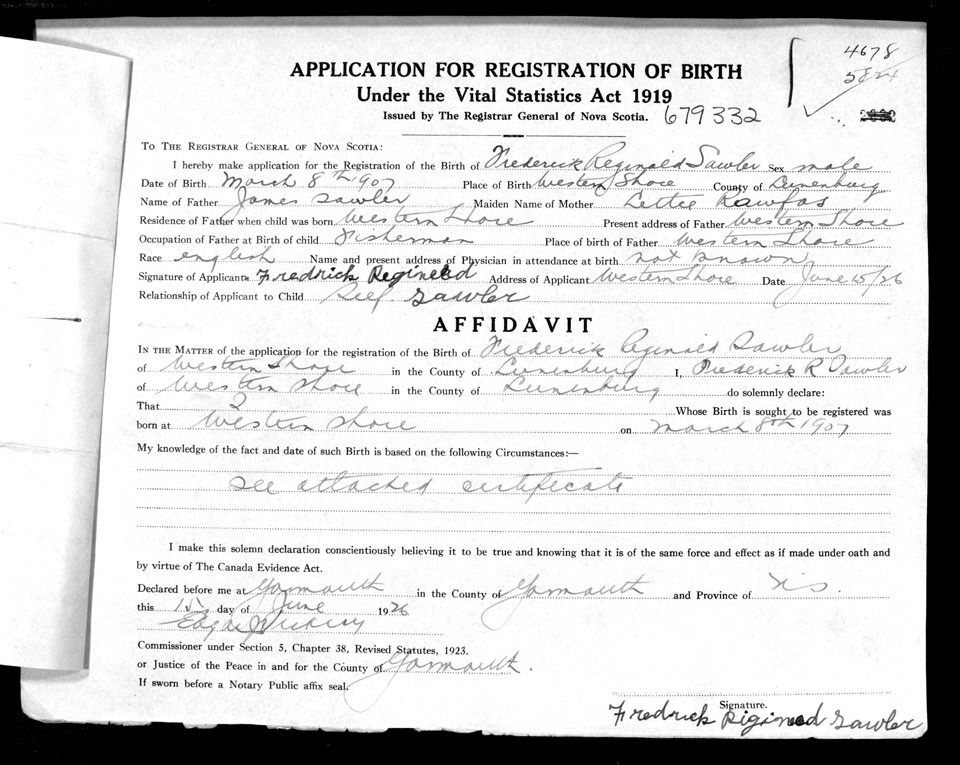 4678
5824
APPLICATION FOR REGISTRATION OF BIRTH
Under the Vital Statistics Act 1919
Issued by The Registrar General of Nova Scotia. 679332
TO THE REGISTRAR GENERAL OF NOVA SCOTIA:
I hereby make application for the Registration of the Birth of Frederick Reginald Sawler Sex male
Date of Birth March 8th 1907 Place of Birth Western Shore County of Lunenburg
Name of Father James Sawler Maiden Name of Mother Lettie
Residence of Father when child was born Western Shore Present address of Father Western Shore
Occupation of Father at Birth of child Fisherman Place of birth of Father Western Shore
Race english Name and present address of Physician in attendance at birth not known
Signature of Applicant Fredrick Regineld Address of Applicant Western Shore Date June 15/26
Relationship of Applicant to Child Self Sawler
AFFIDAVIT
IN THE MATTER of the application for the registration of the Birth of Frederick Reginald Sawler
of Western Shore in the County of Lunenburg I, Frederick R Sawler
of Western Shore in the County of Lunenburg do solemnly declare:
That I Whose Birth is sought to be registered was
born at Western Shore on March 8th 1907
My knowledge of the fact and date of such Birth is based on the following Circumstances:—
See attached certificate
I make this solemn declaration conscientiously believing it to be true and knowing that it is of the same force and effect as if made under oath and
by virtue of The Canada Evidence Act.
Declared before me at Yarmouth in the County of Yarmouth and Province of N.S.
this 15 day of June 1926
Edgar
Commissioner under Section 5, Chapter 38, Revised Statutes, 1923.
or Justice of the Peace in and for the County of Yarmouth.
If sworn before a Notary Public affix seal.
Signature.
Fredrick Sawler